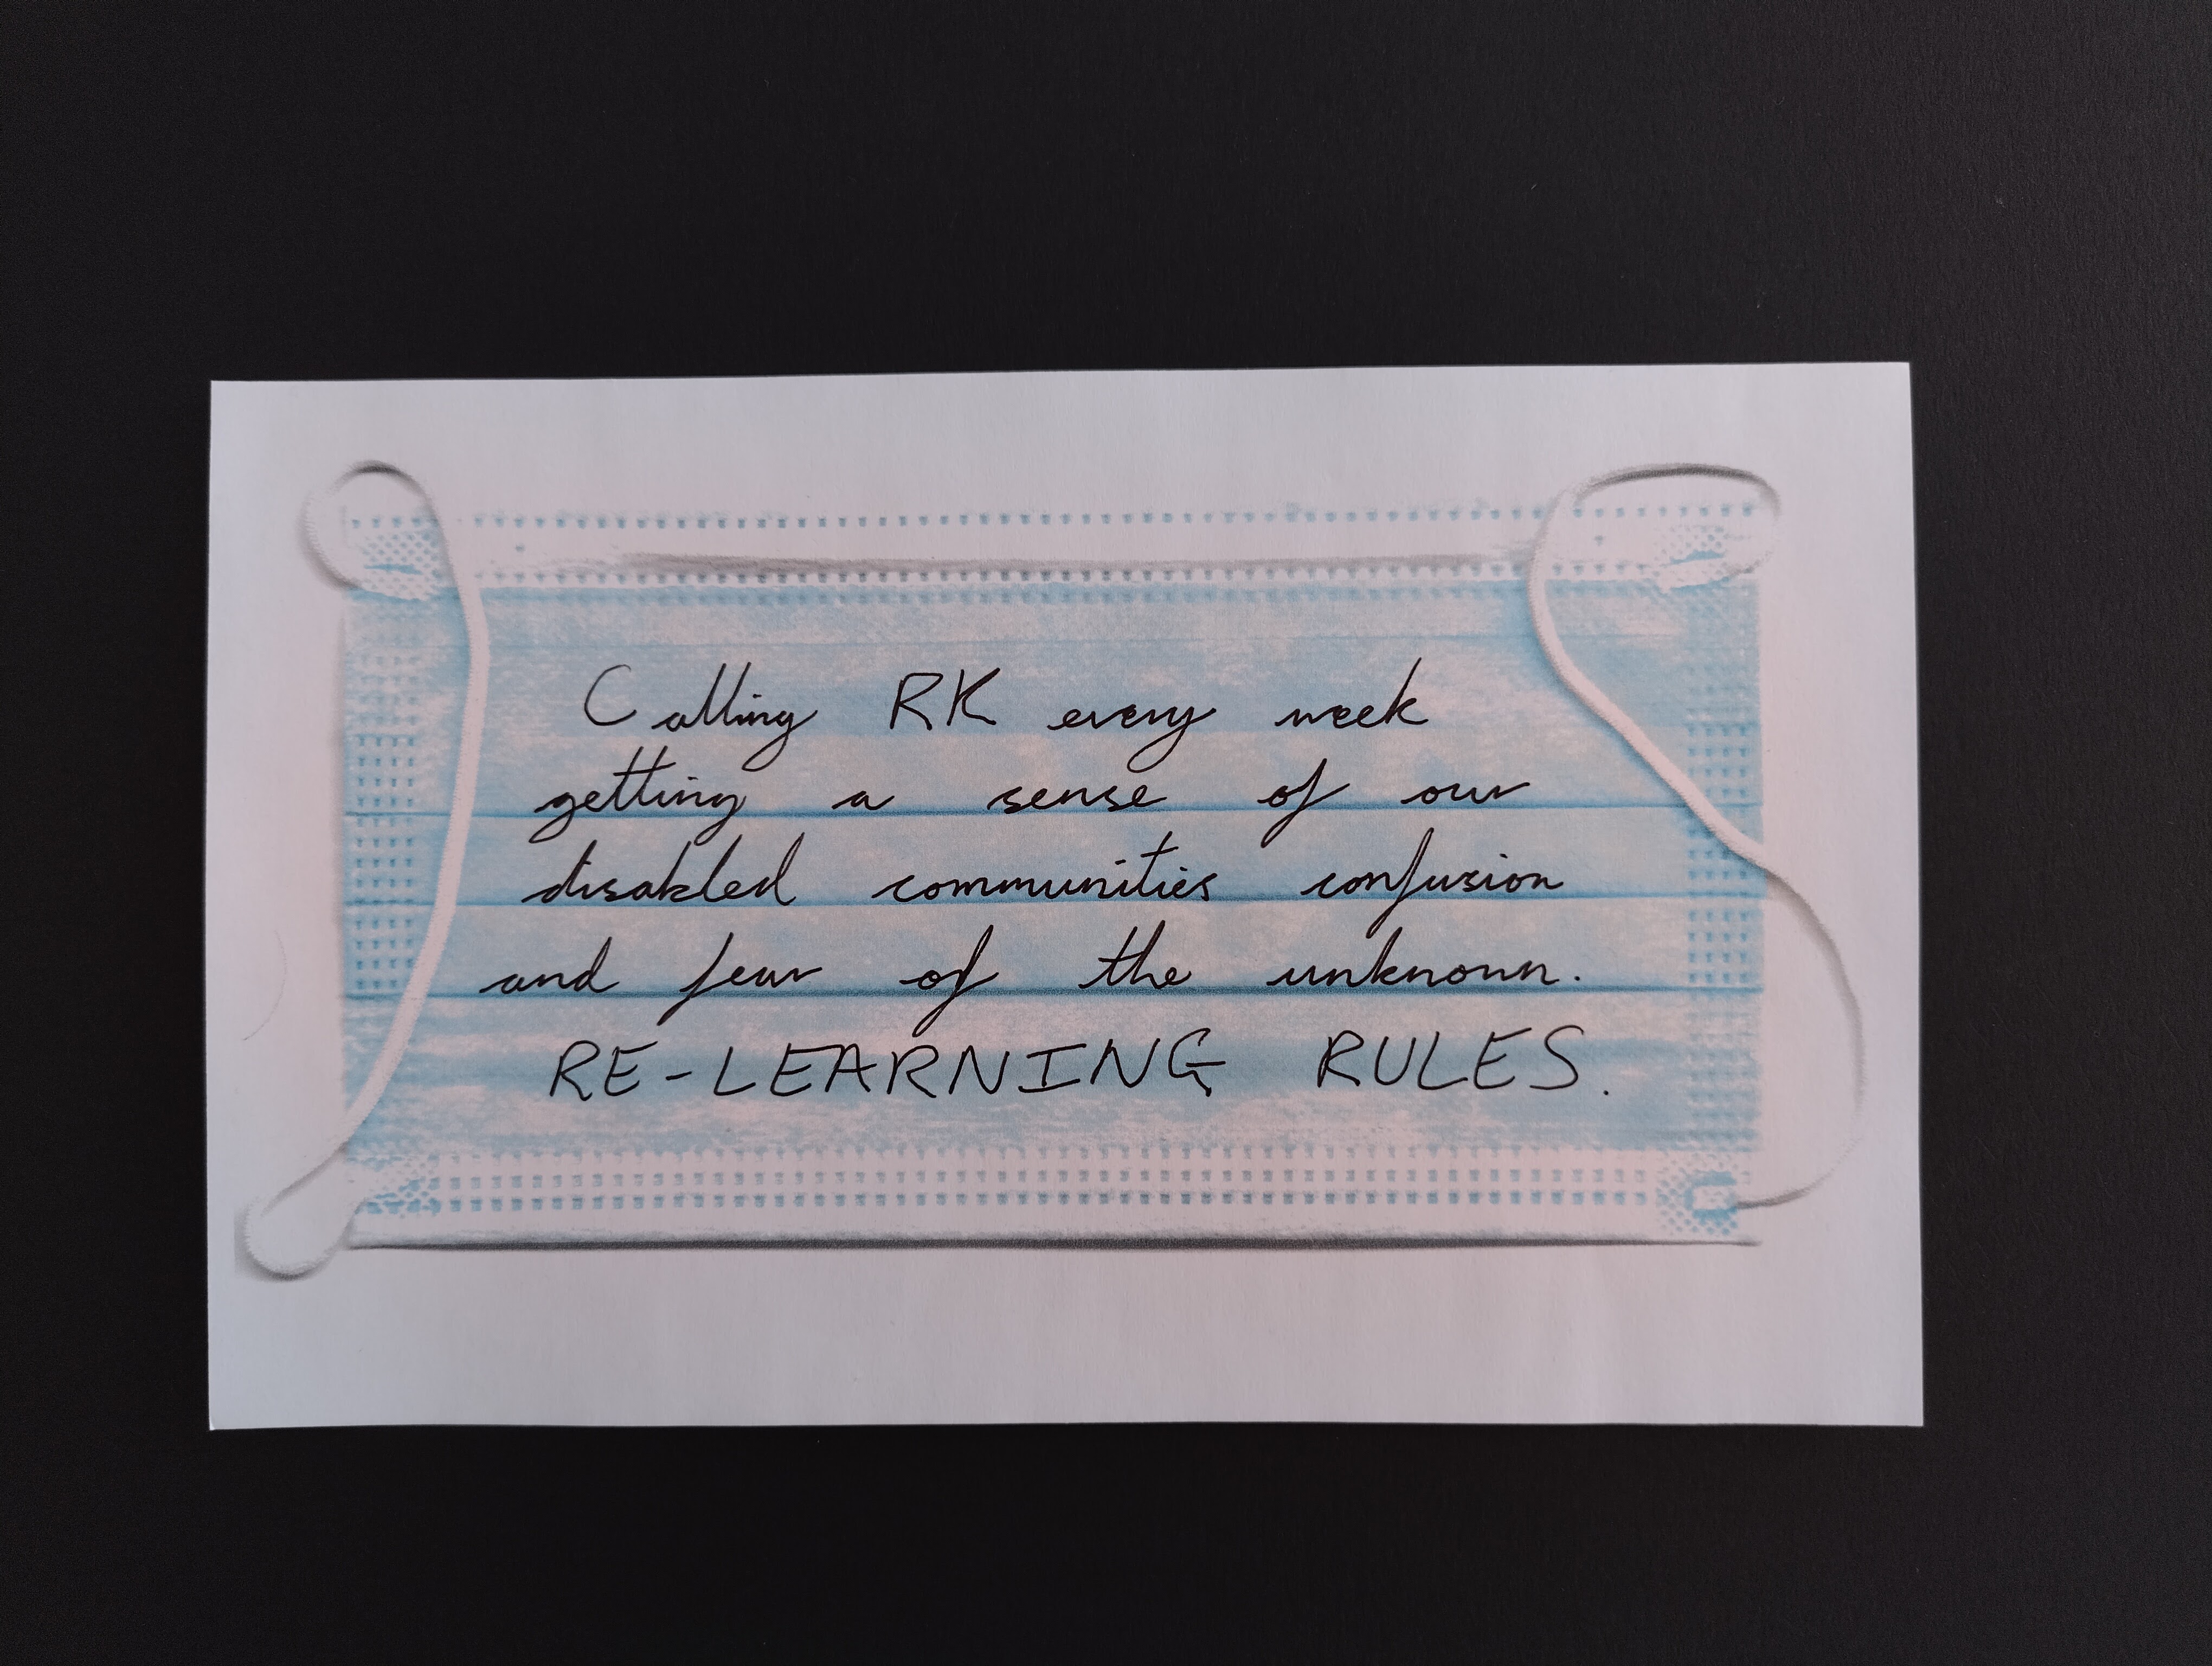 Calling RK every week
getting a sense of our
disabled communities confusion
and fear of the unknown.
RE-LEARNING RULES.